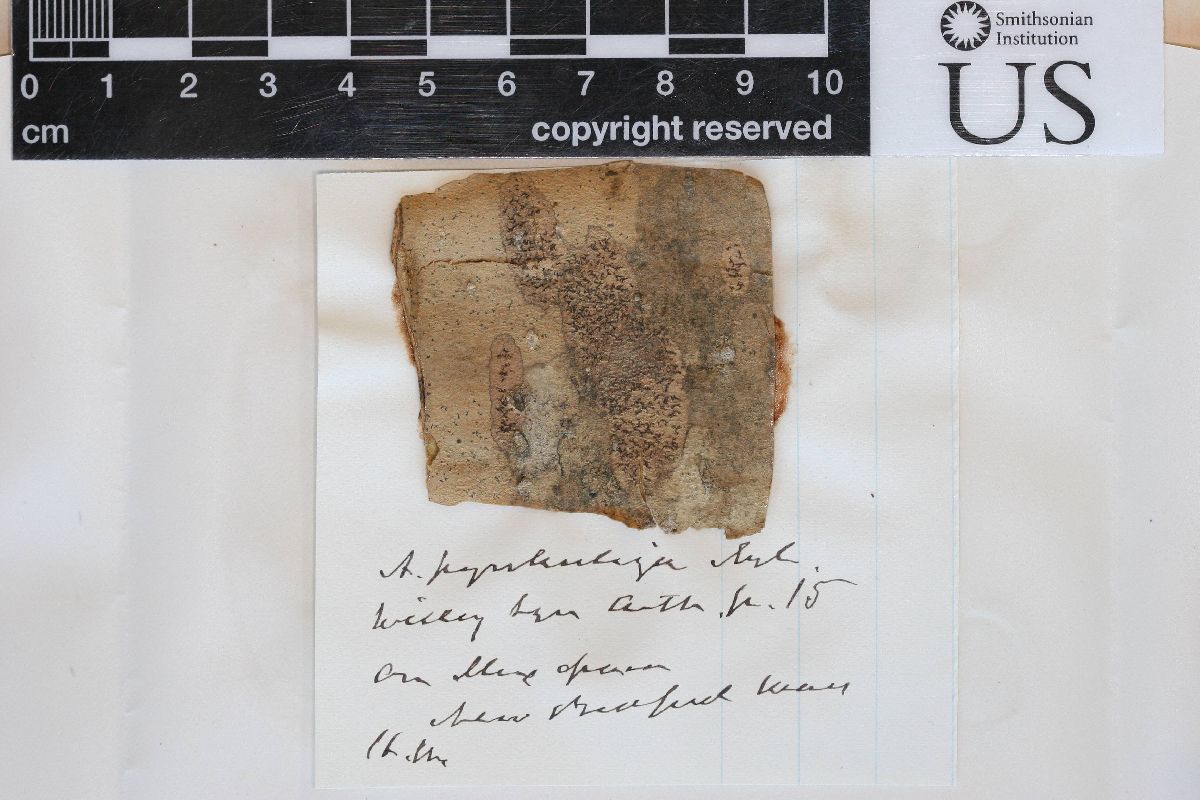 0 1 2 3 4 5 6 7 8 9 10
cm
copyright reserved
Smithsonian
Institution
US
A. Nyl.
Willey Syn Arth. p. 15
on Ilex opaca
New Bedford Mass
H.W.